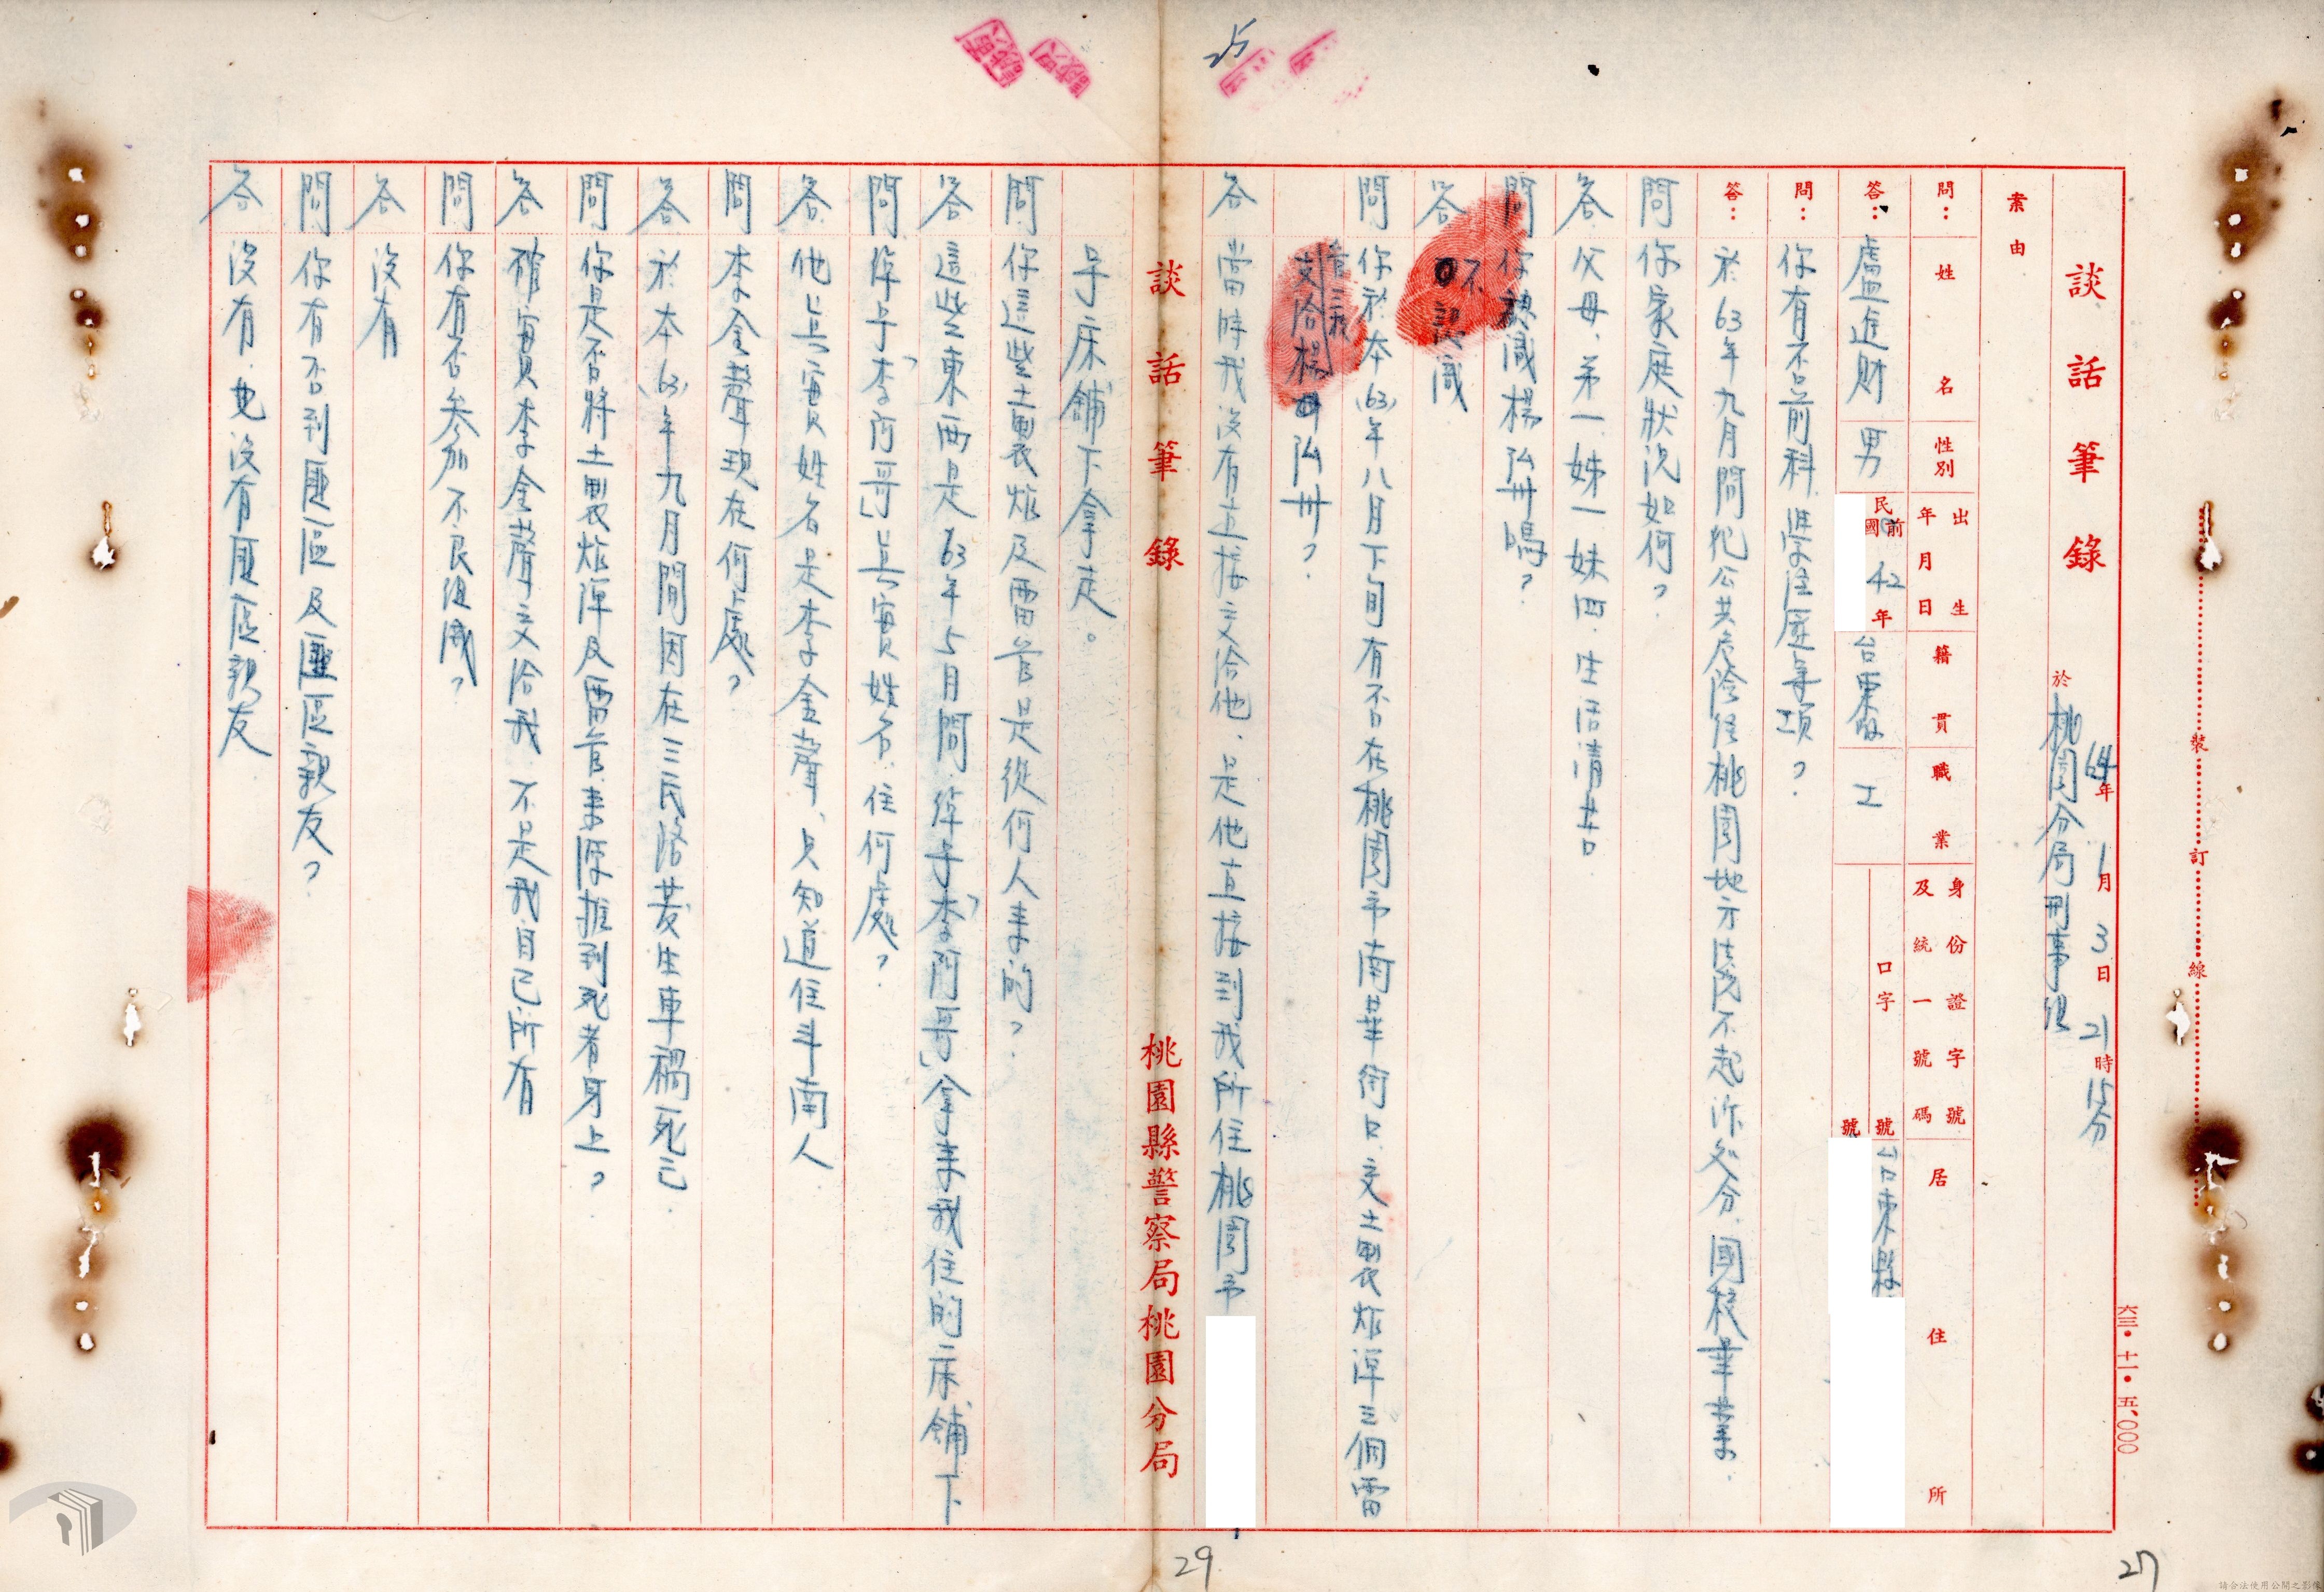 25
談話筆錄
64年1月3日21時15分
於桃園分局刑事組
案由
問：姓名 性別 出生年月日 籍貫 職業 身份證字號及統一號碼 居住所
答：盧進財 男 民國前 42年 台東縣 工 口字 號 號 台東縣
問：你有不已前科、學經歷等項？
答：於63年九月間犯公共危險經桃園地方法院不起訴処分、國校畢業.
問 你家庭狀況如何？
答 父母、弟一、姊一、妹四、生活清苦
問 你認識楊弘卅嗎？
答 不認識
問 你於本(63)年八月下旬有否在桃園市南華街口、交土製炸弹三個雷
管三我
支洽楊弘卅？
答 當時我沒有直接交洽他、是他直接到我所住桃園市
談話筆錄
桃園縣警察局桃園分局
号床舖下拿走。
問 你這些土製炸及雷管是從何人来的？
答 這些東西是63年5月間、綽号「李阿哥」拿来我住的床舖下
問 綽号「李阿哥」真實姓名、住何處？
答 他真實姓名是李金聲、只知道住斗南人
問 李金聲現在何處？
答 於本(63)年九月間因在三民路發生車禍死亡.
問 你是否將土製炸弹及雷管来源推到死者身上？
答 確實李金聲交洽我、不是我自已所有
問 你有否参加不良組織？
答 沒有
問 你有否到匪區及匪區親友？
答 沒有.也沒有匪區親友
六三•十一•五、〇〇〇
裝訂線
29
27
請合法使用公開之影像